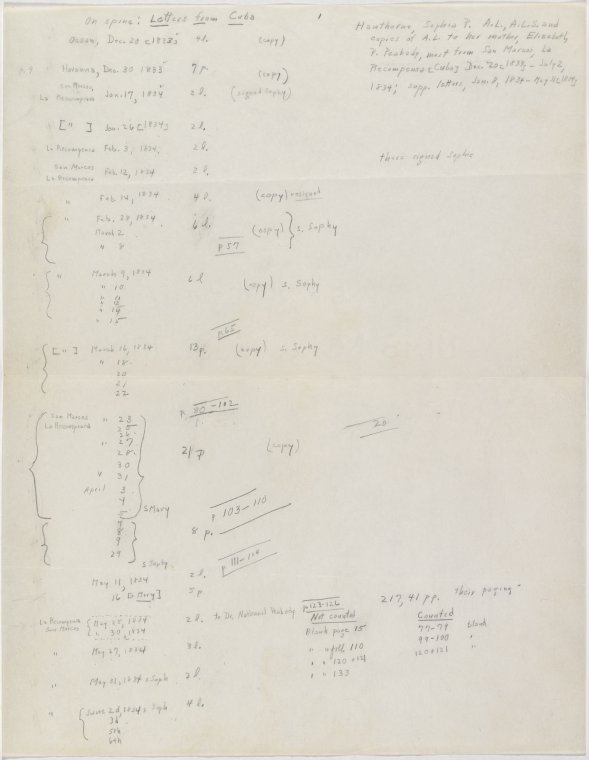 On spine: Letters from Cuba
Hawthorne, Sophia P. A.L., A.L.S. and
copies of A.L. to her mother, Elizabeth
P. Peabody, most from San Marcos, La
Recompensa [Cuba] Dec. 20 - July 2,
1834; supp. letters, Jan. 8, 1834 - May
Ocean, Dec. 20 4 l. (copy)
p. 9 Havanna, Dec. 30 1833 7 p. (copy)
San Marcos,
La Recompensa Jan. 17, 1834 2 l. (signed Sophy)
[ " ] Jan. 26 [1834] 2 l.
La Recompensa Feb. 3, 1834, 2 l.
three signed Sophie
San Marcos
La Recompensa Feb. 12, 1834 2 l.
" Feb. 14, 1834 4 l. (copy) unsigned
" Feb. 28, 1834 6 l. (copy) s. Sophy
March 2
" 8
p 57
" March 9, 1834 6 l (copy) s. Sophy
" 10
" 11
" 12
" 14
" 15
p. 65
[ " ] March 16, 1834 13 p. (copy) s. Sophy
" 18
20
21
22
p. 80-102
San Marcos " 23
La Recompensa 25
26
" 27 21 p (copy)
28
30
" 31
April 3
4
5 s Mary
20
p 103-110
8 p.
8
9
29 s Sophy
p 111-114
May 11, 1834 2 l.
16 [s Mary] 5 p
p. 123-126
217, 41 pp. their paging
La Recompensa May 25, 1834 2 l. to Dr. Nathaniel Peabody
San Marcos " 30, 1834
Not counted
Counted
Blank page 15
77-79 blank
" May 27, 1834 3 l.
110
99-100 "
" " 120 + 121
120+121 "
" " 133
" May 31, 1834 s Soph 2 l.
" June 2d, 1834 s Soph 4 l.
3d
5th
6th